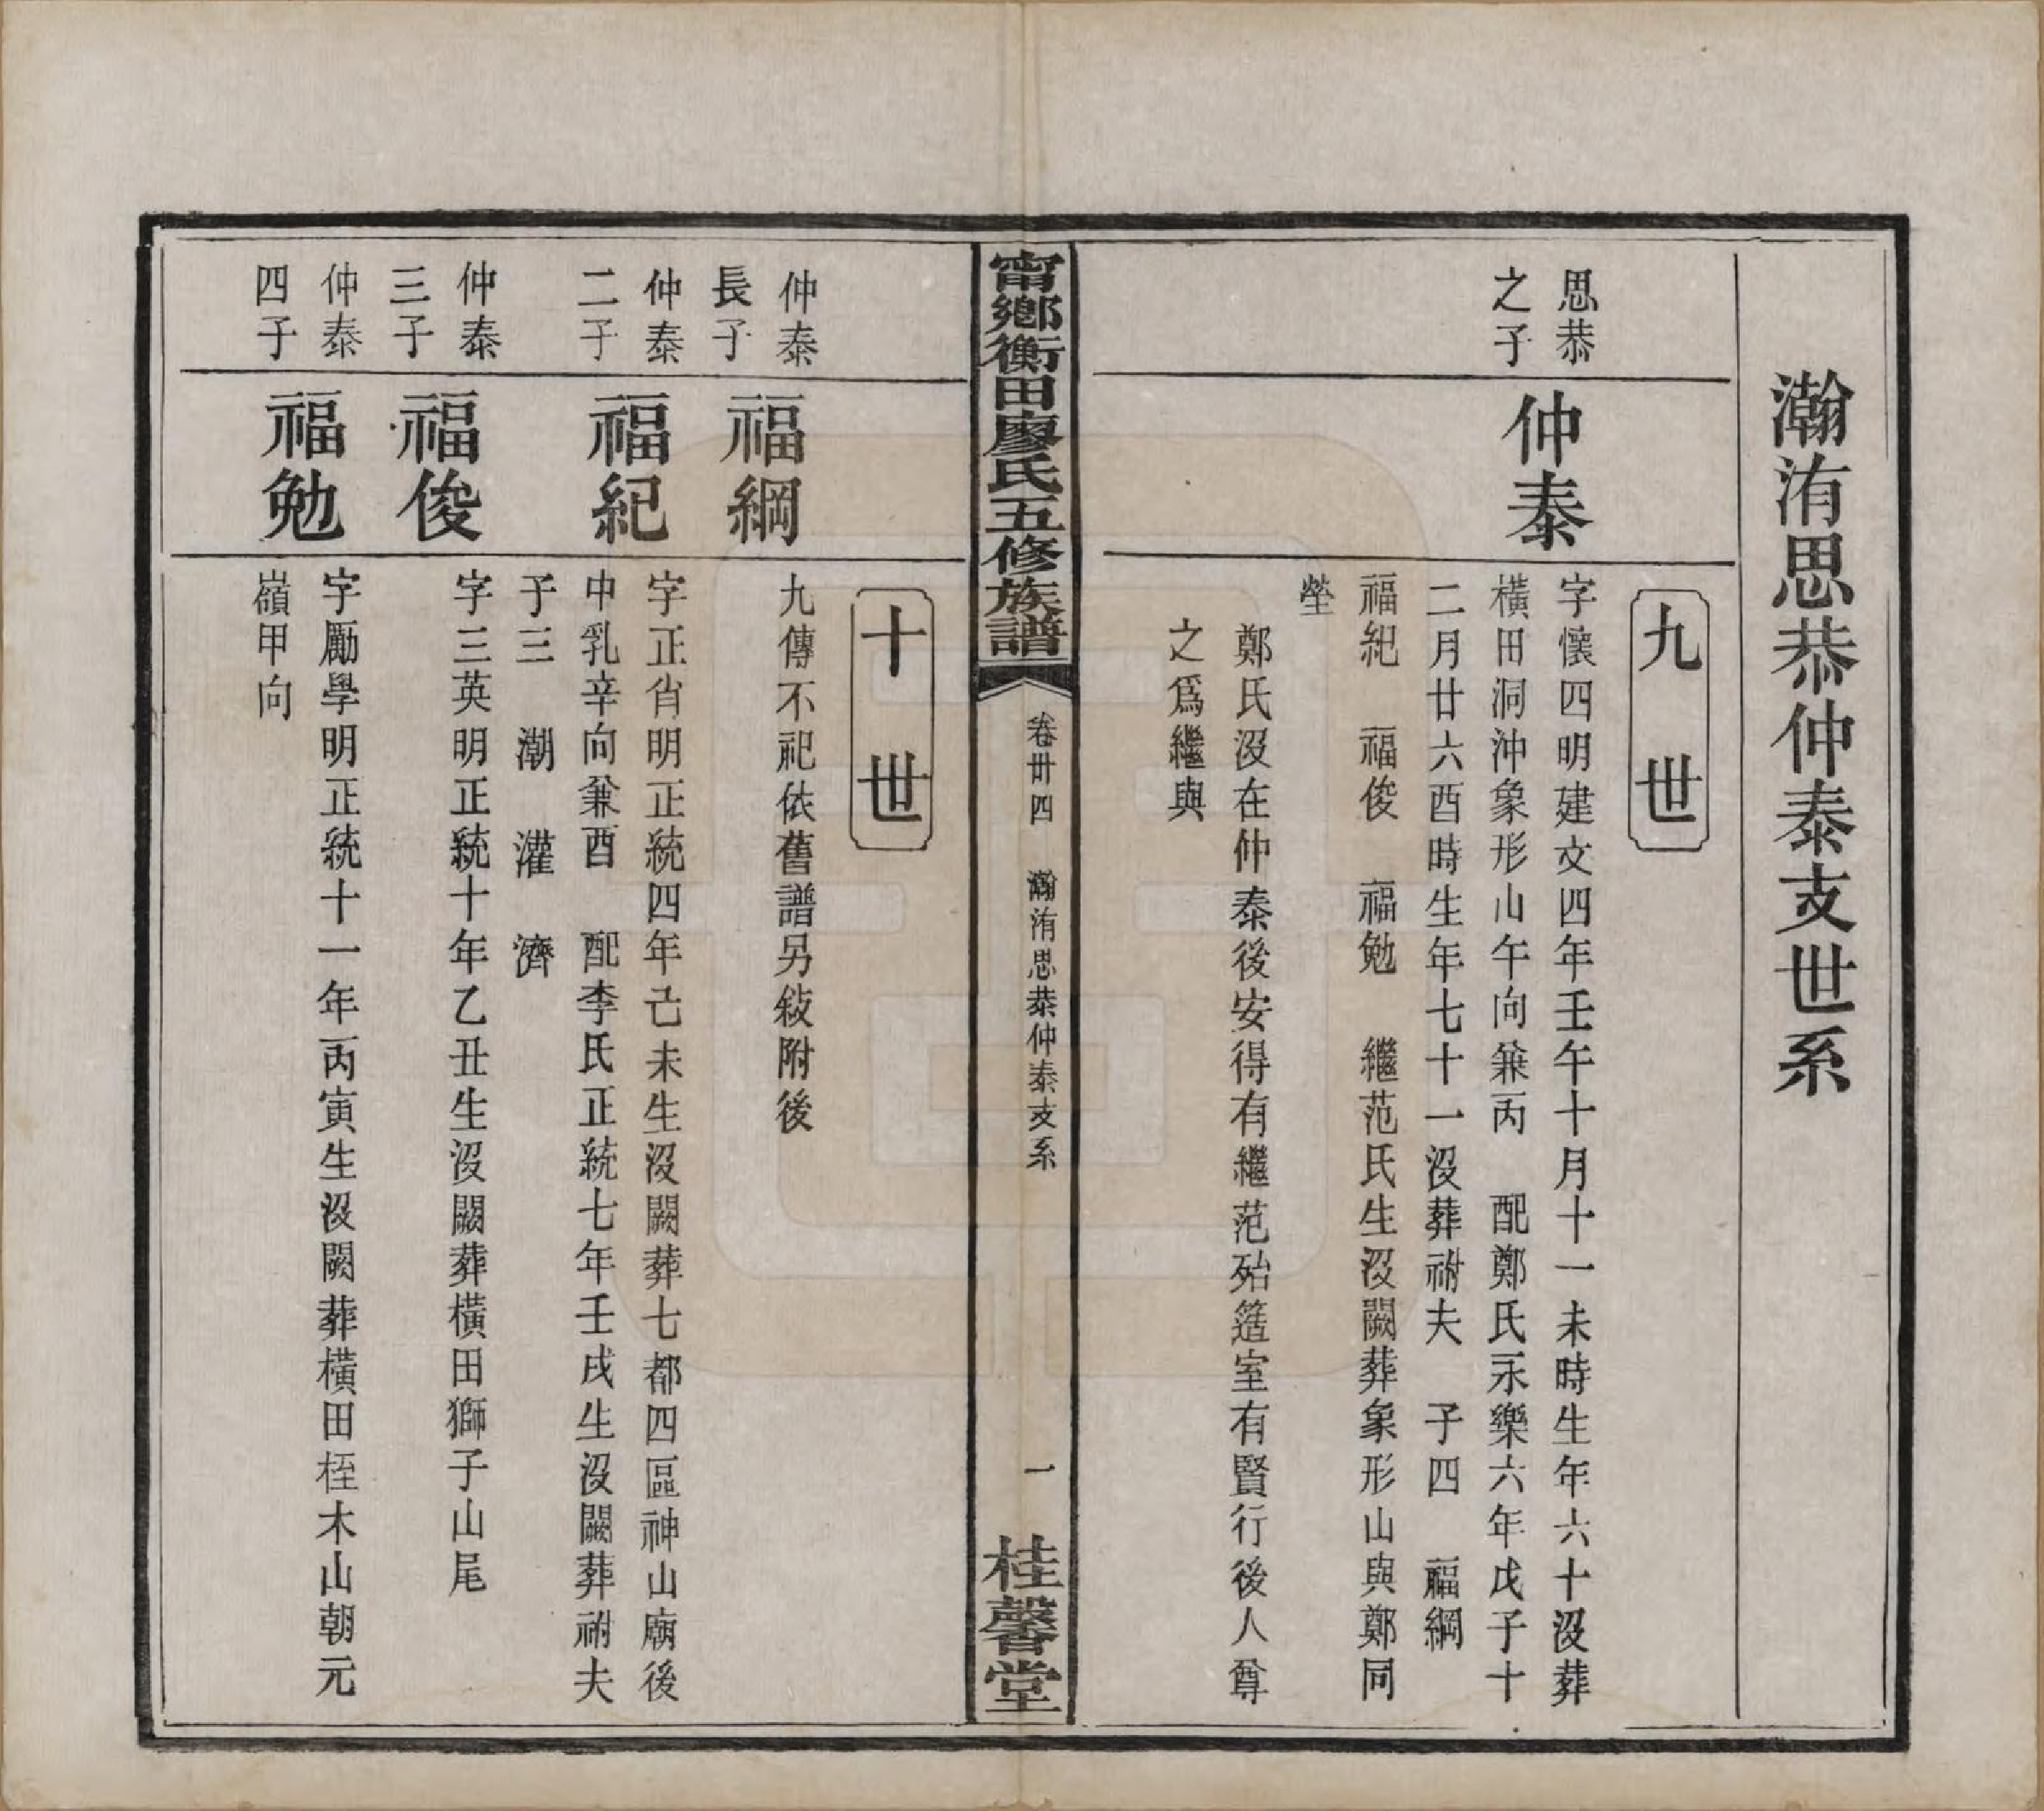 瀚洧思恭仲泰支世系
九世
思恭
之子
仲泰
字懷四明建文四年壬午十月十一未時生年六十沒葬
橫田洞沖象形山午向兼丙　配鄭氏永樂六年戊子十
二月廿六酉時生年七十一沒葬祔夫　子四　福綱
福紀　福俊　福勉　繼范氏生沒闕葬象形山與鄭同
塋
鄭氏沒在仲泰後安得有繼范殆簉室有賢行後人尊
之爲繼與
甯鄉衡田廖氏五修族譜
卷卅四　瀚洧思恭仲泰支系
一
桂馨堂
十世
仲泰
長子
福綱
九傳不祀依舊譜另敍附後
仲泰
二子
福紀
字正省明正統四年己未生沒闕葬七都四區神山廟後
中乳辛向兼酉　配李氏正統七年壬戌生沒闕葬祔夫
子三　潮　灌　濟
仲泰
三子
福俊
字三英明正統十年乙丑生沒闕葬橫田獅子山尾
仲泰
四子
福勉
字勵學明正統十一年丙寅生沒闕葬橫田桎木山朝元
嶺甲向